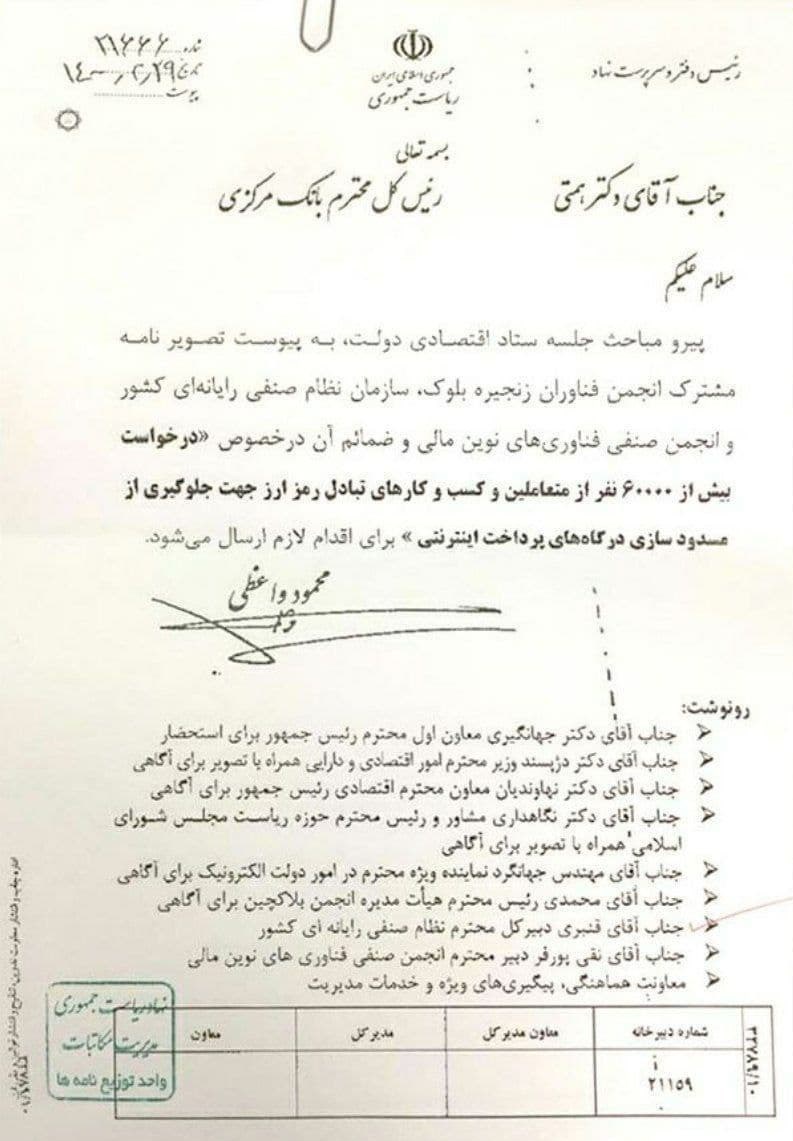 شماره ۲۱۶۶۶
تاریخ ۱۴۰۰/۲/۲۹
پیوست
جمهوری اسلامی ایران
ریاست جمهوری
رئیس دفتر و سرپرست نهاد
بسمه تعالی
جناب آقای دکتر همتی
رئیس کل محترم بانک مرکزی
سلام علیکم
پیرو مباحث جلسه ستاد اقتصادی دولت، به پیوست تصویر نامه
مشترک انجمن فناوران زنجیره بلوک، سازمان نظام صنفی رایانه‌ای کشور
و انجمن صنفی فناوری‌های نوین مالی و ضمائم آن درخصوص «درخواست
بیش از ۶۰۰۰۰ نفر از متعاملین و کسب و کارهای تبادل رمز ارز جهت جلوگیری از
مسدود سازی درگاه‌های پرداخت اینترنتی» برای اقدام لازم ارسال می‌شود.
محمود واعظی
رونوشت:
جناب آقای دکتر جهانگیری معاون اول محترم رئیس جمهور برای استحضار
جناب آقای دکتر دژپسند وزیر محترم امور اقتصادی و دارایی همراه با تصویر برای آگاهی
جناب آقای دکتر نهاوندیان معاون محترم اقتصادی رئیس جمهور برای آگاهی
جناب آقای دکتر نگاهداری مشاور و رئیس محترم حوزه ریاست مجلس شورای
اسلامی همراه با تصویر برای آگاهی
جناب آقای مهندس جهانگرد نماینده ویژه محترم در امور دولت الکترونیک برای آگاهی
جناب آقای محمدی رئیس محترم هیأت مدیره انجمن بلاکچین برای آگاهی
جناب آقای قنبری دبیرکل محترم نظام صنفی رایانه ای کشور
جناب آقای نقی پورفر دبیر محترم انجمن صنفی فناوری های نوین مالی
معاونت هماهنگی، پیگیری‌های ویژه و خدمات مدیریت
نهاد ریاست جمهوری
مدیریت مکاتبات
واحد توزیع نامه ها
شماره دبیرخانه
معاون مدیرکل
مدیرکل
معاون
۲۱۱۵۹
۳۳۷۸۹/۱۰